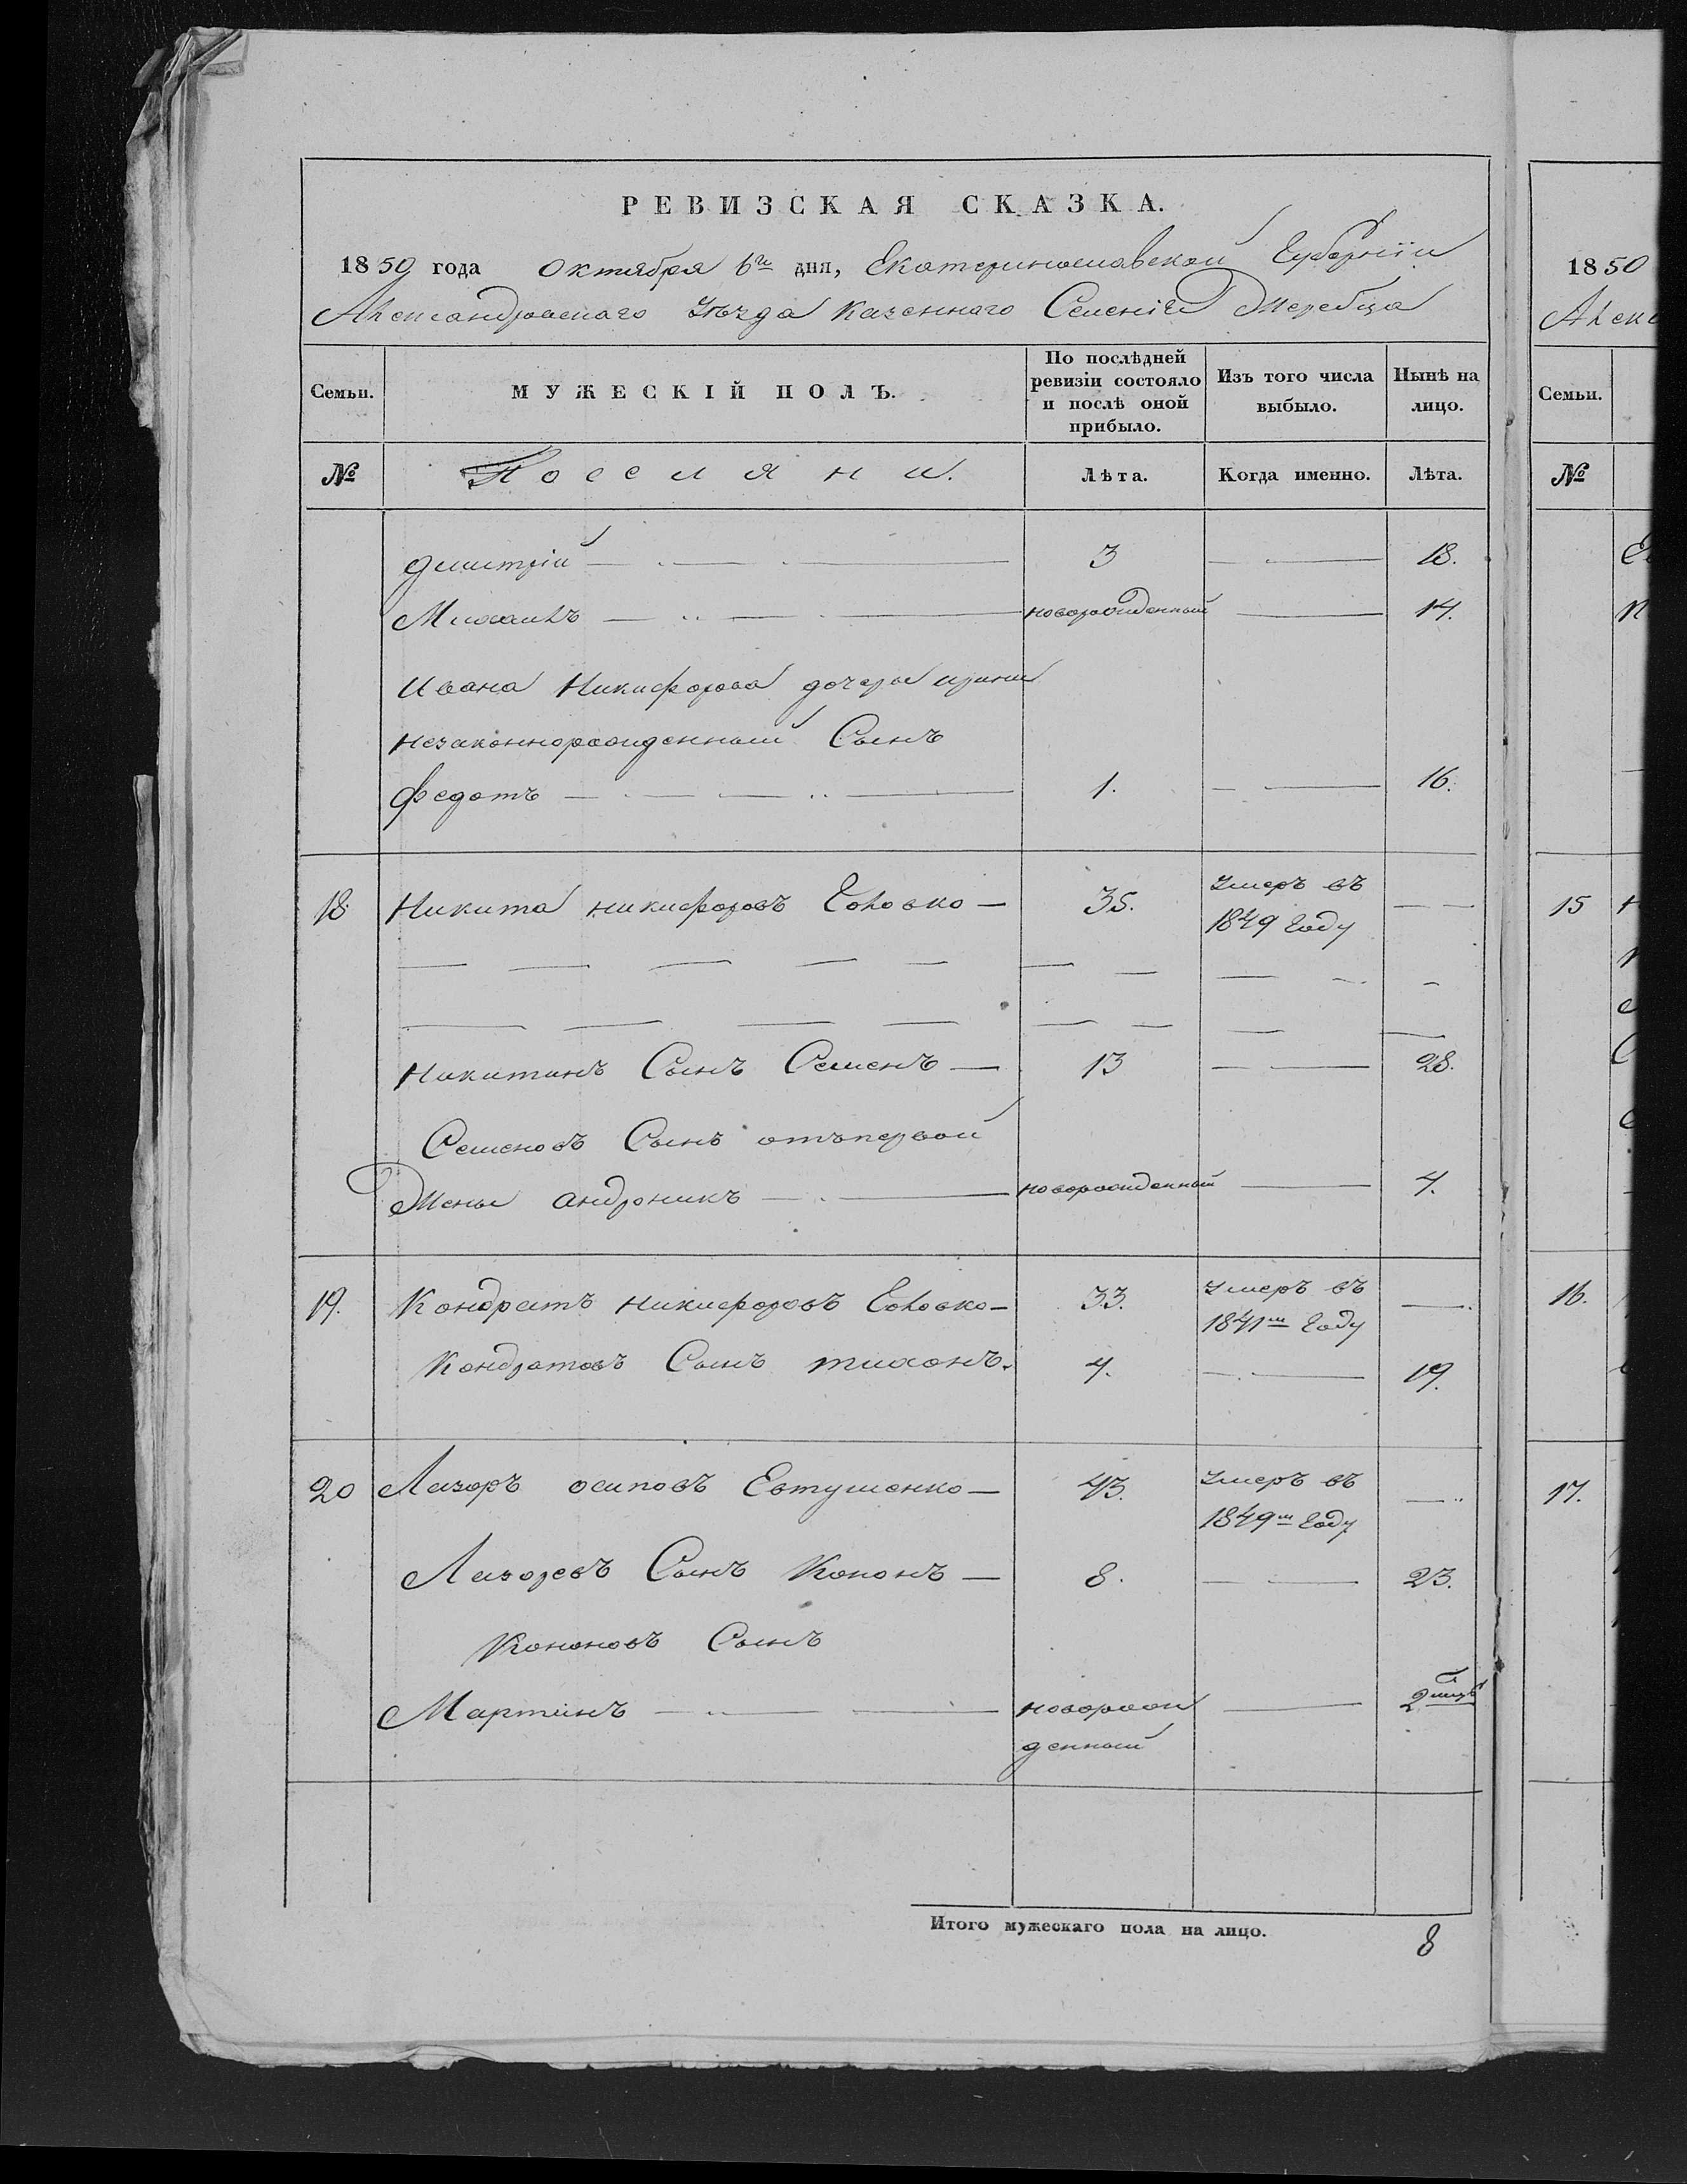 РЕВИЗСКАЯ СКАЗКА.
1850 года Октября 6го дня, Екатеринославской Губерніи
Александровскаго Уѣзда Казеннаго Селенія Жеребца
Семьи. МУЖЕСКІЙ ПОЛЪ. По послѣдней ревизіи состояло и послѣ оной прибыло. Изъ того числа выбыло. Нынѣ на лицо.
№ Поселяни. Лѣта. Когда именно. Лѣта.
Димитрій 3 18.
Михаилъ новорожденный 14.
Ивана Никифорова дочеры ирины
незаконнорожденный Сынъ
Федотъ 1. 16.
18 Никита никифоровъ Головко 35. Умеръ въ 1849 Году
Никитинъ Сынъ Семенъ 13 28.
Семеновъ Сынъ отъ первой
Жены андроникъ новорожденный 4.
19. Кондратъ никифоровъ Головко 33. Умеръ въ 1841м Году
Кондратовъ Сынъ тихонъ. 4. 19.
20 Лазоръ осиповъ Евтушенко 43. Умеръ въ 1849м Году
Лазоревъ Сынъ Кононъ 8. 23.
Кононовъ Сынъ
Мартинъ новорож
денный 2 мцъ
Итого мужескаго пола на лицо. 8
1850
Алекс
Семьи.
№
15
16.
17.